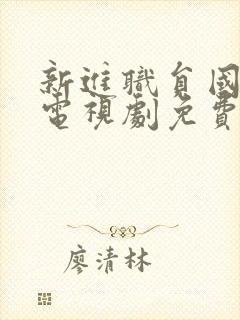 新進職員國
電視劇免費
廖清林